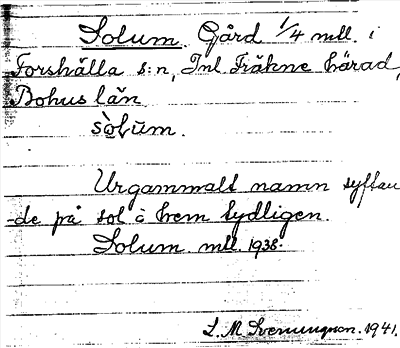 Solum. Gård 1/4 mtl. i
Forshälla s:n, Inl Fräkne härad,
Bohus län
sòlùm.
Urgammalt namn syftan
-de på sol o hem tydligen.
Solum. mtl. 1938.
L. M. Svenungson. 1941.